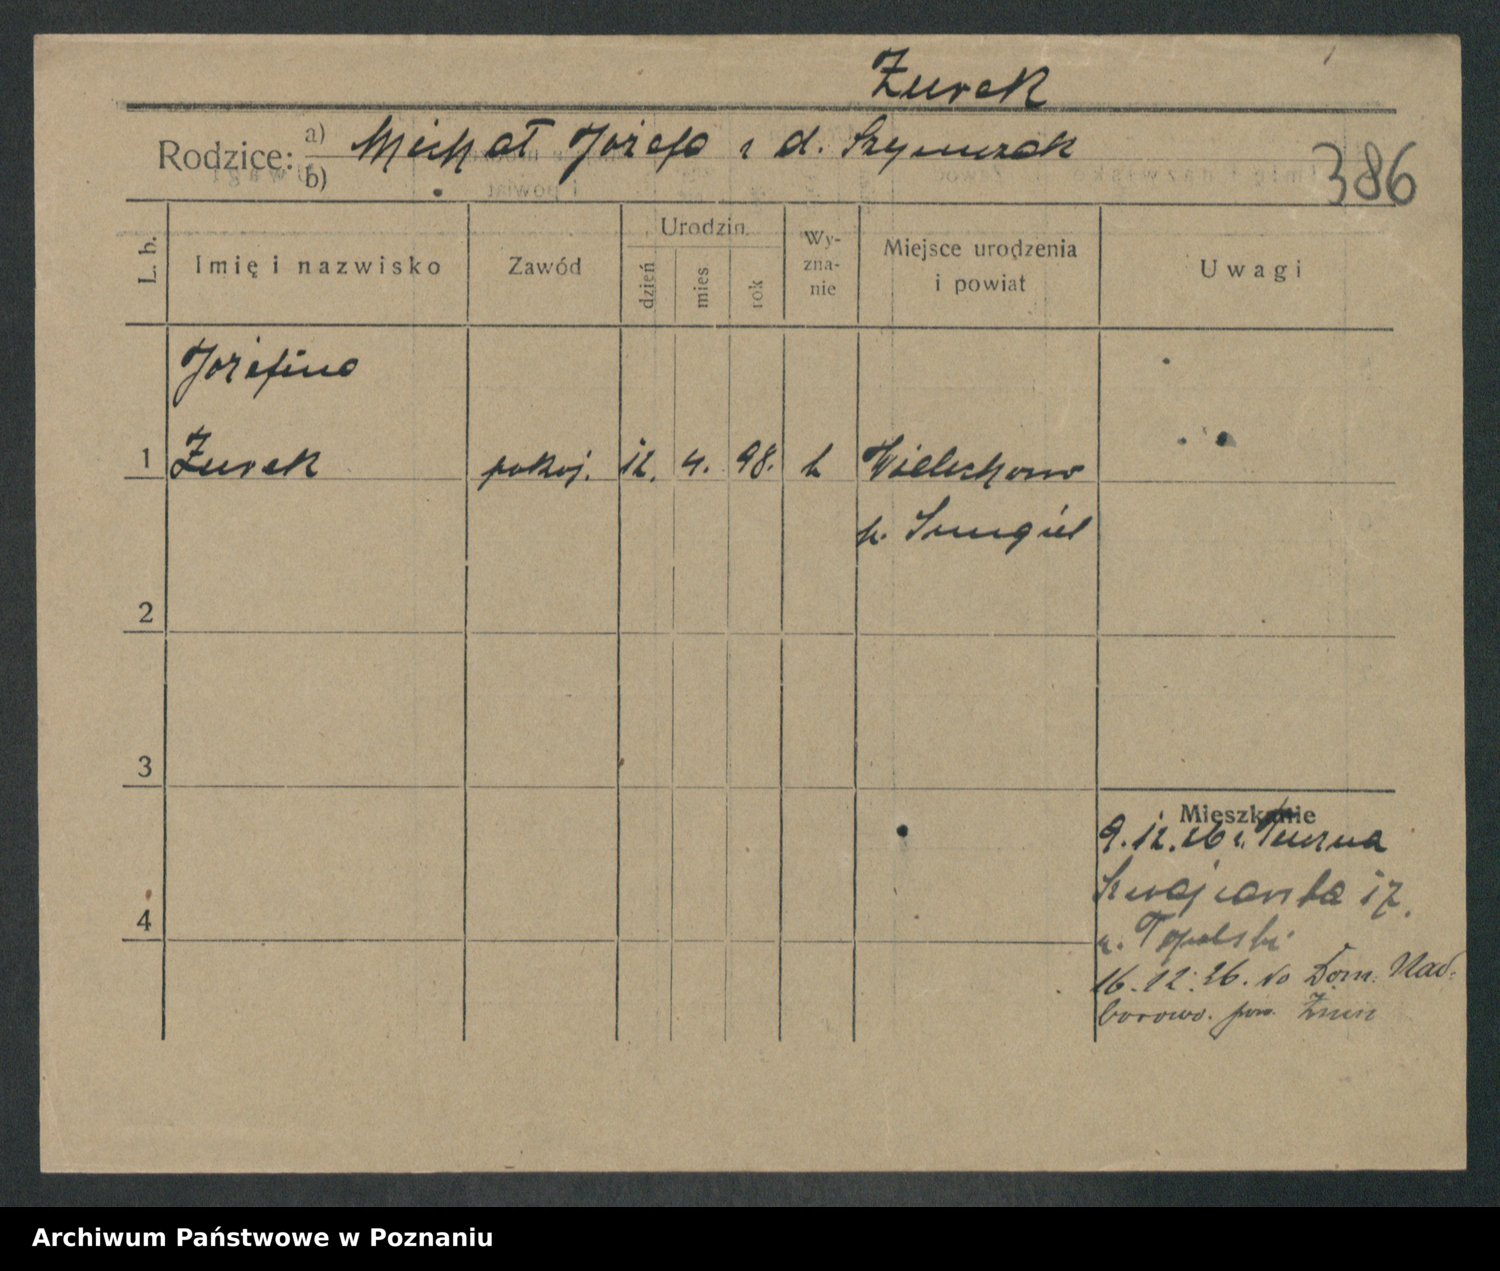 Żurek
Rodzice: a) Michał Józefa z d. Szymczak
b)
386
L. b.
Imię i nazwisko
Zawód
Urodzin
dzień
mies
rok
Wy-
zna-
nie
Miejsce urodzenia
i powiat
Uwagi
Józefina
1 Żurek pokoj. 12. 4. 98. k Wielichowo
p. Smigiel
2
3
4
Mieszkanie
9.12.26 z
Szwajcarska 17.
u. Topolski
16.12.26. do Dom. Nad-
borowo. pow. Żnin
Archiwum Państwowe w Poznaniu